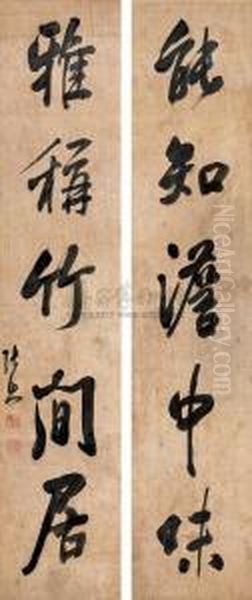 能知澹中味
雅稱竹間居